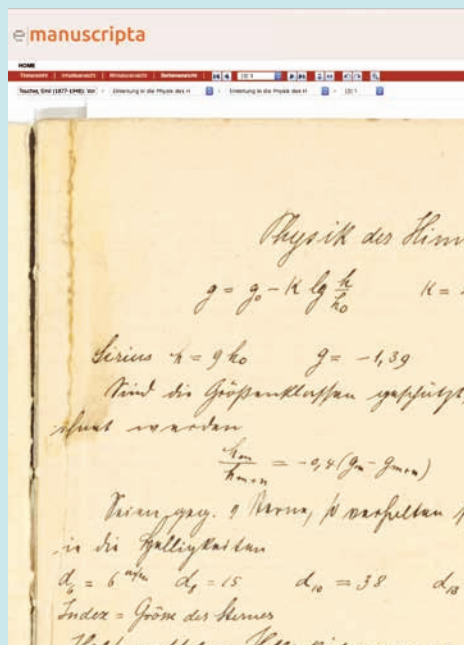 e|manuscripta
HOME
Titelansicht | Inhaltsansicht | Miniaturansicht | Seitenansicht | [3] 1
Tauscher, Emil (1877-1948): Vor > Einleitung in die Physik des H > Einleitung in die Physik des H > [3] 1
Physik des Him
g = g₀ - K lg h/h₀ K =
Sirius h = 9 h₀ g = -1,39
Sind die Größenklassen geschützt,
werden
hₘ/hₘ₊ₙ = -0,4 (gₘ - gₘ₊ₙ)
Seien geg. 9 Sterne, so verhalten
die Helligkeiten
d₆ = 6 d₈ = 15 d₁₀ = 38 d₁₃
Index = Grösse des Sternes